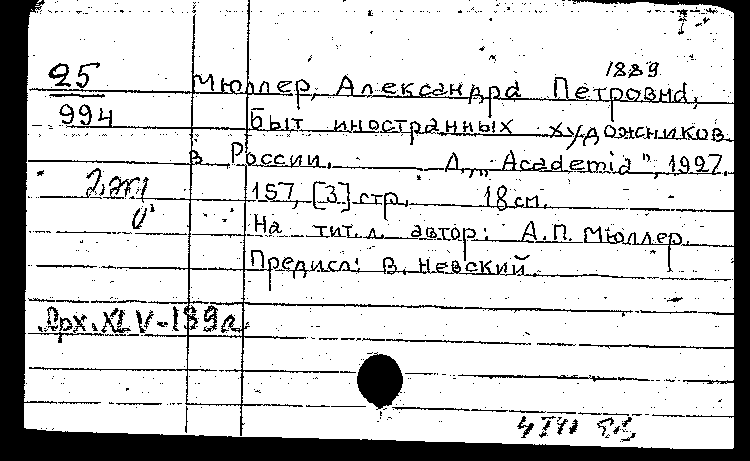 1889
25 Мюллер, Александра Петровна,
994 Быт иностранных художников
в России. Л., „Academia", 1927.
2 экз 157, [3] стр. 18 см.
На тит. л. автор: А.П. Мюллер.
Предисл: В. Невский.
Арх. XLV-189а